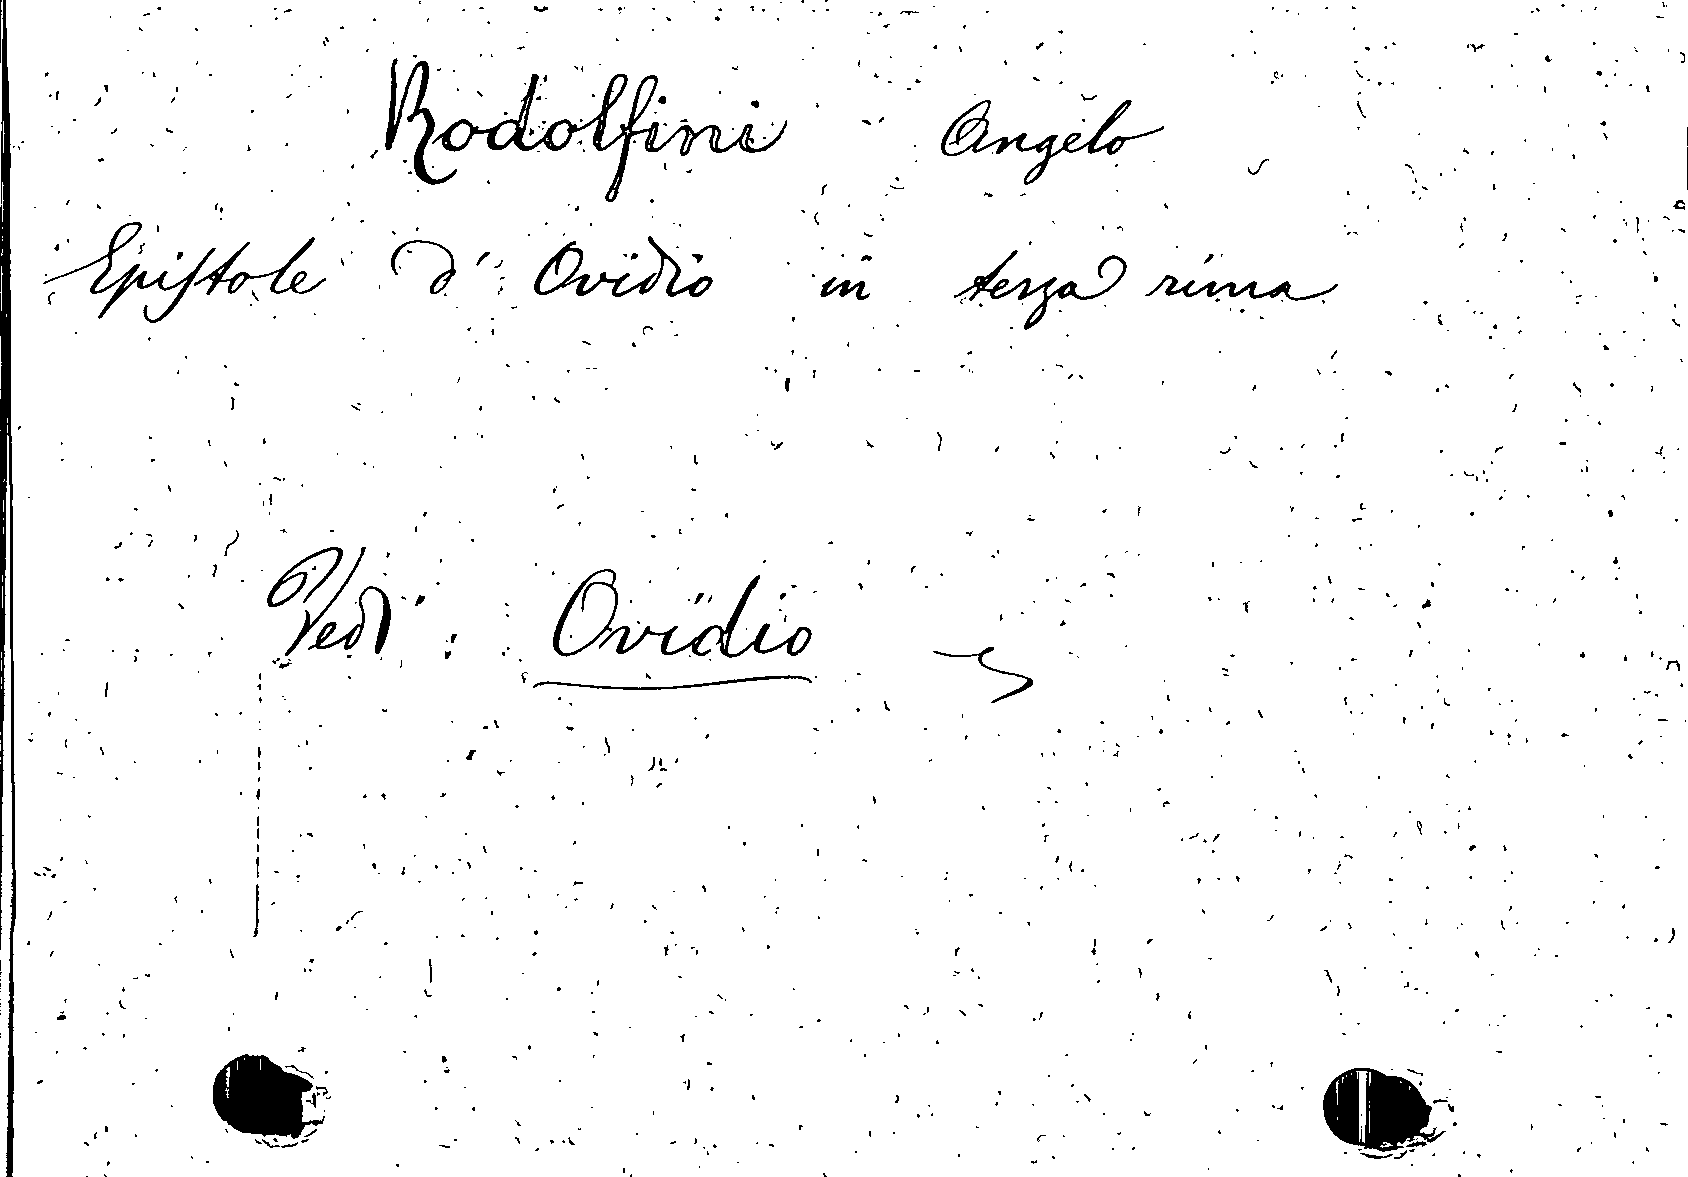 Rodolfini Angelo
Epistole d' Ovidio in terza rima
Vedi : Ovidio